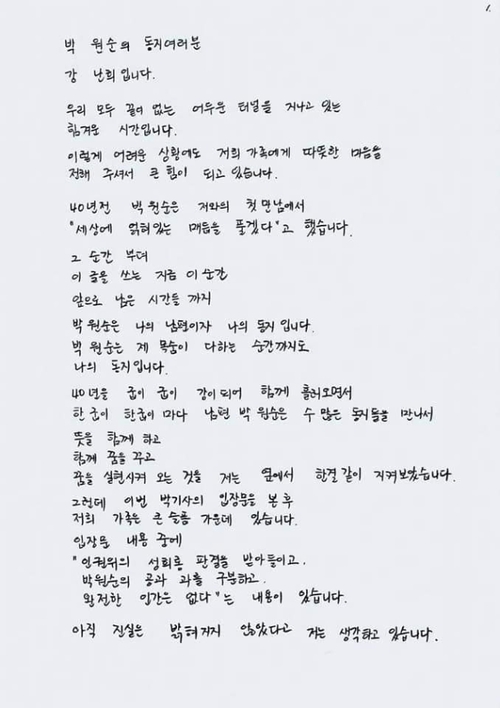 1.
박 원순의 동지여러분
강 난희입니다.
우리 모두 끝이 없는 어두운 터널을 지나고 있는
힘겨운 시간입니다.
이렇게 어려운 상황에도 저희 가족에게 따뜻한 마음을
전해 주셔서 큰 힘이 되고 있습니다.
40년전 박 원순은 저와의 첫 만남에서
"세상에 얽혀있는 매듭을 풀겠다"고 했습니다.
그 순간 부터
이 글을 쓰는 지금 이 순간
앞으로 남은 시간들 까지
박 원순은 나의 남편이자 나의 동지 입니다.
박 원순은 제 목숨이 다하는 순간까지도
나의 동지입니다.
40년을 굽이 굽이 강이되어 함께 흘러오면서
한 굽이 한굽이 마다 남편 박 원순은 수 많은 동지들을 만나서
뜻을 함께 하고
함께 꿈을 꾸고
꿈을 실현시켜 오는 것을 저는 옆에서 한결같이 지켜보았습니다.
그런데 이번 박기사의 입장문을 본 후
저희 가족은 큰 슬픔 가운데 있습니다.
입장문 내용 중에
"인권위의 성희롱 판결을 받아들이고,
박원순의 공과 과를 구분하고,
완전한 인간은 없다"는 내용이 있습니다.
아직 진실은 밝혀지지 않았다고 저는 생각하고 있습니다.